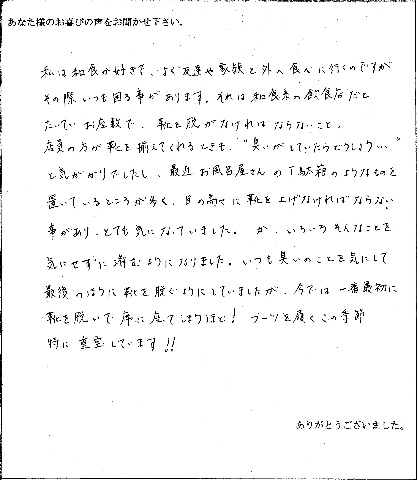 あなた様のお喜びの声をお聞かせ下さい。
私は和食が好きで、よく友達や家族と外へ食べに行くのですが
その際いつも困る事があります。それは和食系の飲食店だと
たいていお座敷で、靴を脱がなければならないこと。
店員の方が靴を揃えてくれるときも、"臭いがしていたらどうしよう…"
と気がかりでしたし、最近お風呂屋さんの下駄箱のようなものを
置いているところが多く、目の高さに靴を上げなければならない
事があり、とても気になっていました。が、いろいろそんなことを
気にせずに済むようになりました。いつも臭いのことを気にして
最後のほうに靴を脱ぐようにしていましたが、今では一番最初に
靴を脱いで席に座てしまうほど！ブーツを履くこの季節
特に重宝しています!!
ありがとうございました。